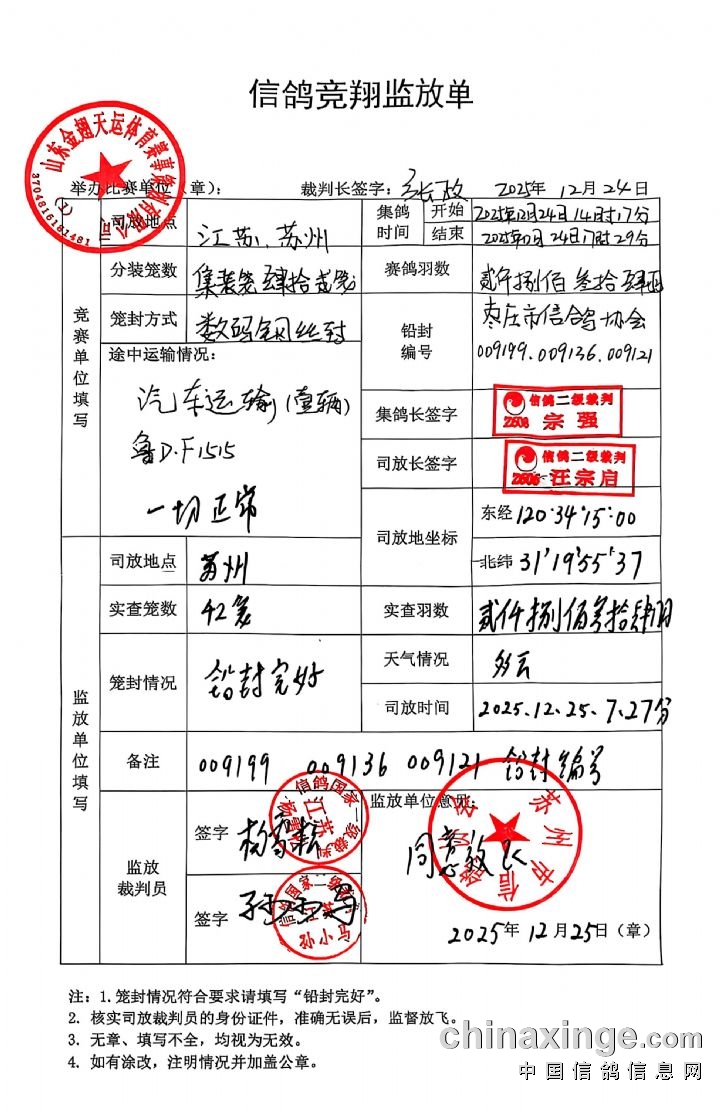 信鸽竞翔监放单
山东金翅天运体育赛事策划有限公司
(1)
3704816181481
举办比赛单位（章）： 裁判长签字： 2025年 12月24日
竞赛单位填写
司放地点 江苏、苏州
集鸽时间 开始 2025年12月24日14时17分
结束 2025年12月24日17时29分
分装笼数 集装笼肆拾贰笼
赛鸽羽数 贰仟捌佰叁拾肆羽
笼封方式 数码钢丝封
铅封编号 枣庄市信鸽协会
009199.009136.009121
途中运输情况：
汽车运输(壹辆)
鲁D.F1515
一切正常
集鸽长签字 信鸽二级裁判
宗强
司放长签字 信鸽二级裁判
汪宗启
司放地坐标 东经 120°34'15:00
北纬 31°19'55"37
监放单位填写
司放地点 苏州
实查笼数 42笼
实查羽数 贰仟捌佰叁拾肆羽
笼封情况 铅封完好
天气情况 多云
司放时间 2025.12.25.7.27分
备注 009199 009136 009121 铅封编号
监放裁判员
签字
信鸽国家一级裁判
江苏
签字
信鸽国家一级裁判
江苏
孙小马
监放单位意见：
同意放飞
2025年12月25日（章）
注：1.笼封情况符合要求请填写“铅封完好”。
2. 核实司放裁判员的身份证件，准确无误后，监督放飞。
3. 无章、填写不全，均视为无效。
4. 如有涂改，注明情况并加盖公章。
chinaxinge.com
中国信鸽信息网